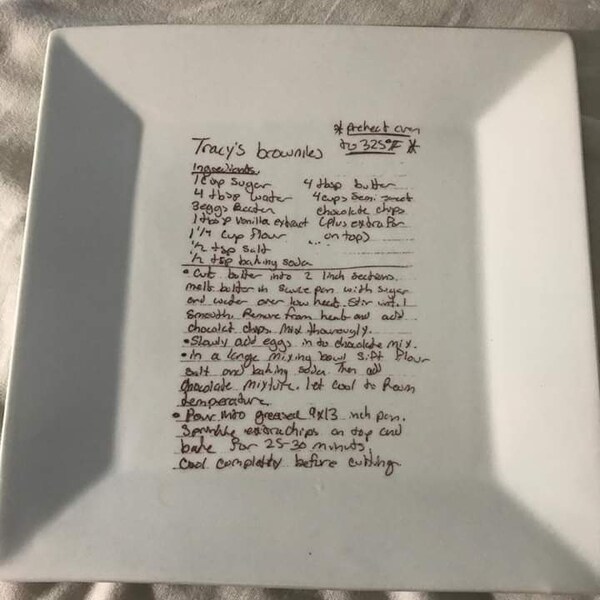 * Preheat oven
to 325°F *
Tracy's brownies
Ingredients
1 cup sugar 4 tbsp butter
4 tbsp water 4 cups semi sweet
3 eggs beaten chocolate chips
1 tbsp vanilla extract (plus extra for
cup flour ... on top)
1/2 tsp salt
1/2 tsp baking soda
• Cut butter into 2 inch sections.
melt butter in sauce pan with sugar
and water over low heat. Stir until
smooth. Remove from heat and add
chocolat chips. Mix thourougly.
• Slowly add eggs into chocolate mix.
• in a large mixing bowl sift flour
salt and baking soda. Then add
chocolate mixture. let cool to Room
temperature.
• Pour into greased 9x13 inch pan.
Sprinkle extra chips on top and
bake for 25-30 minuts
Cool completely before cutting